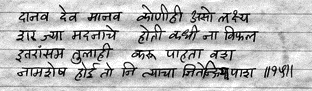 दानव देव मानव कोणीही असो लक्ष्य
शर ज्या मदनाचे होती कधी ना विफल
इतरांसम तुलाही करू पाहता वश
नामशेष होई तो नि त्याचा जितेन्द्रियपाश ॥१५॥